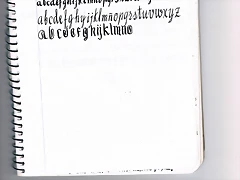 abcdefghijklmnopqrstuvwxyz
abcdefghijklmñopqrstuvwxyz
abcdefghijklmño